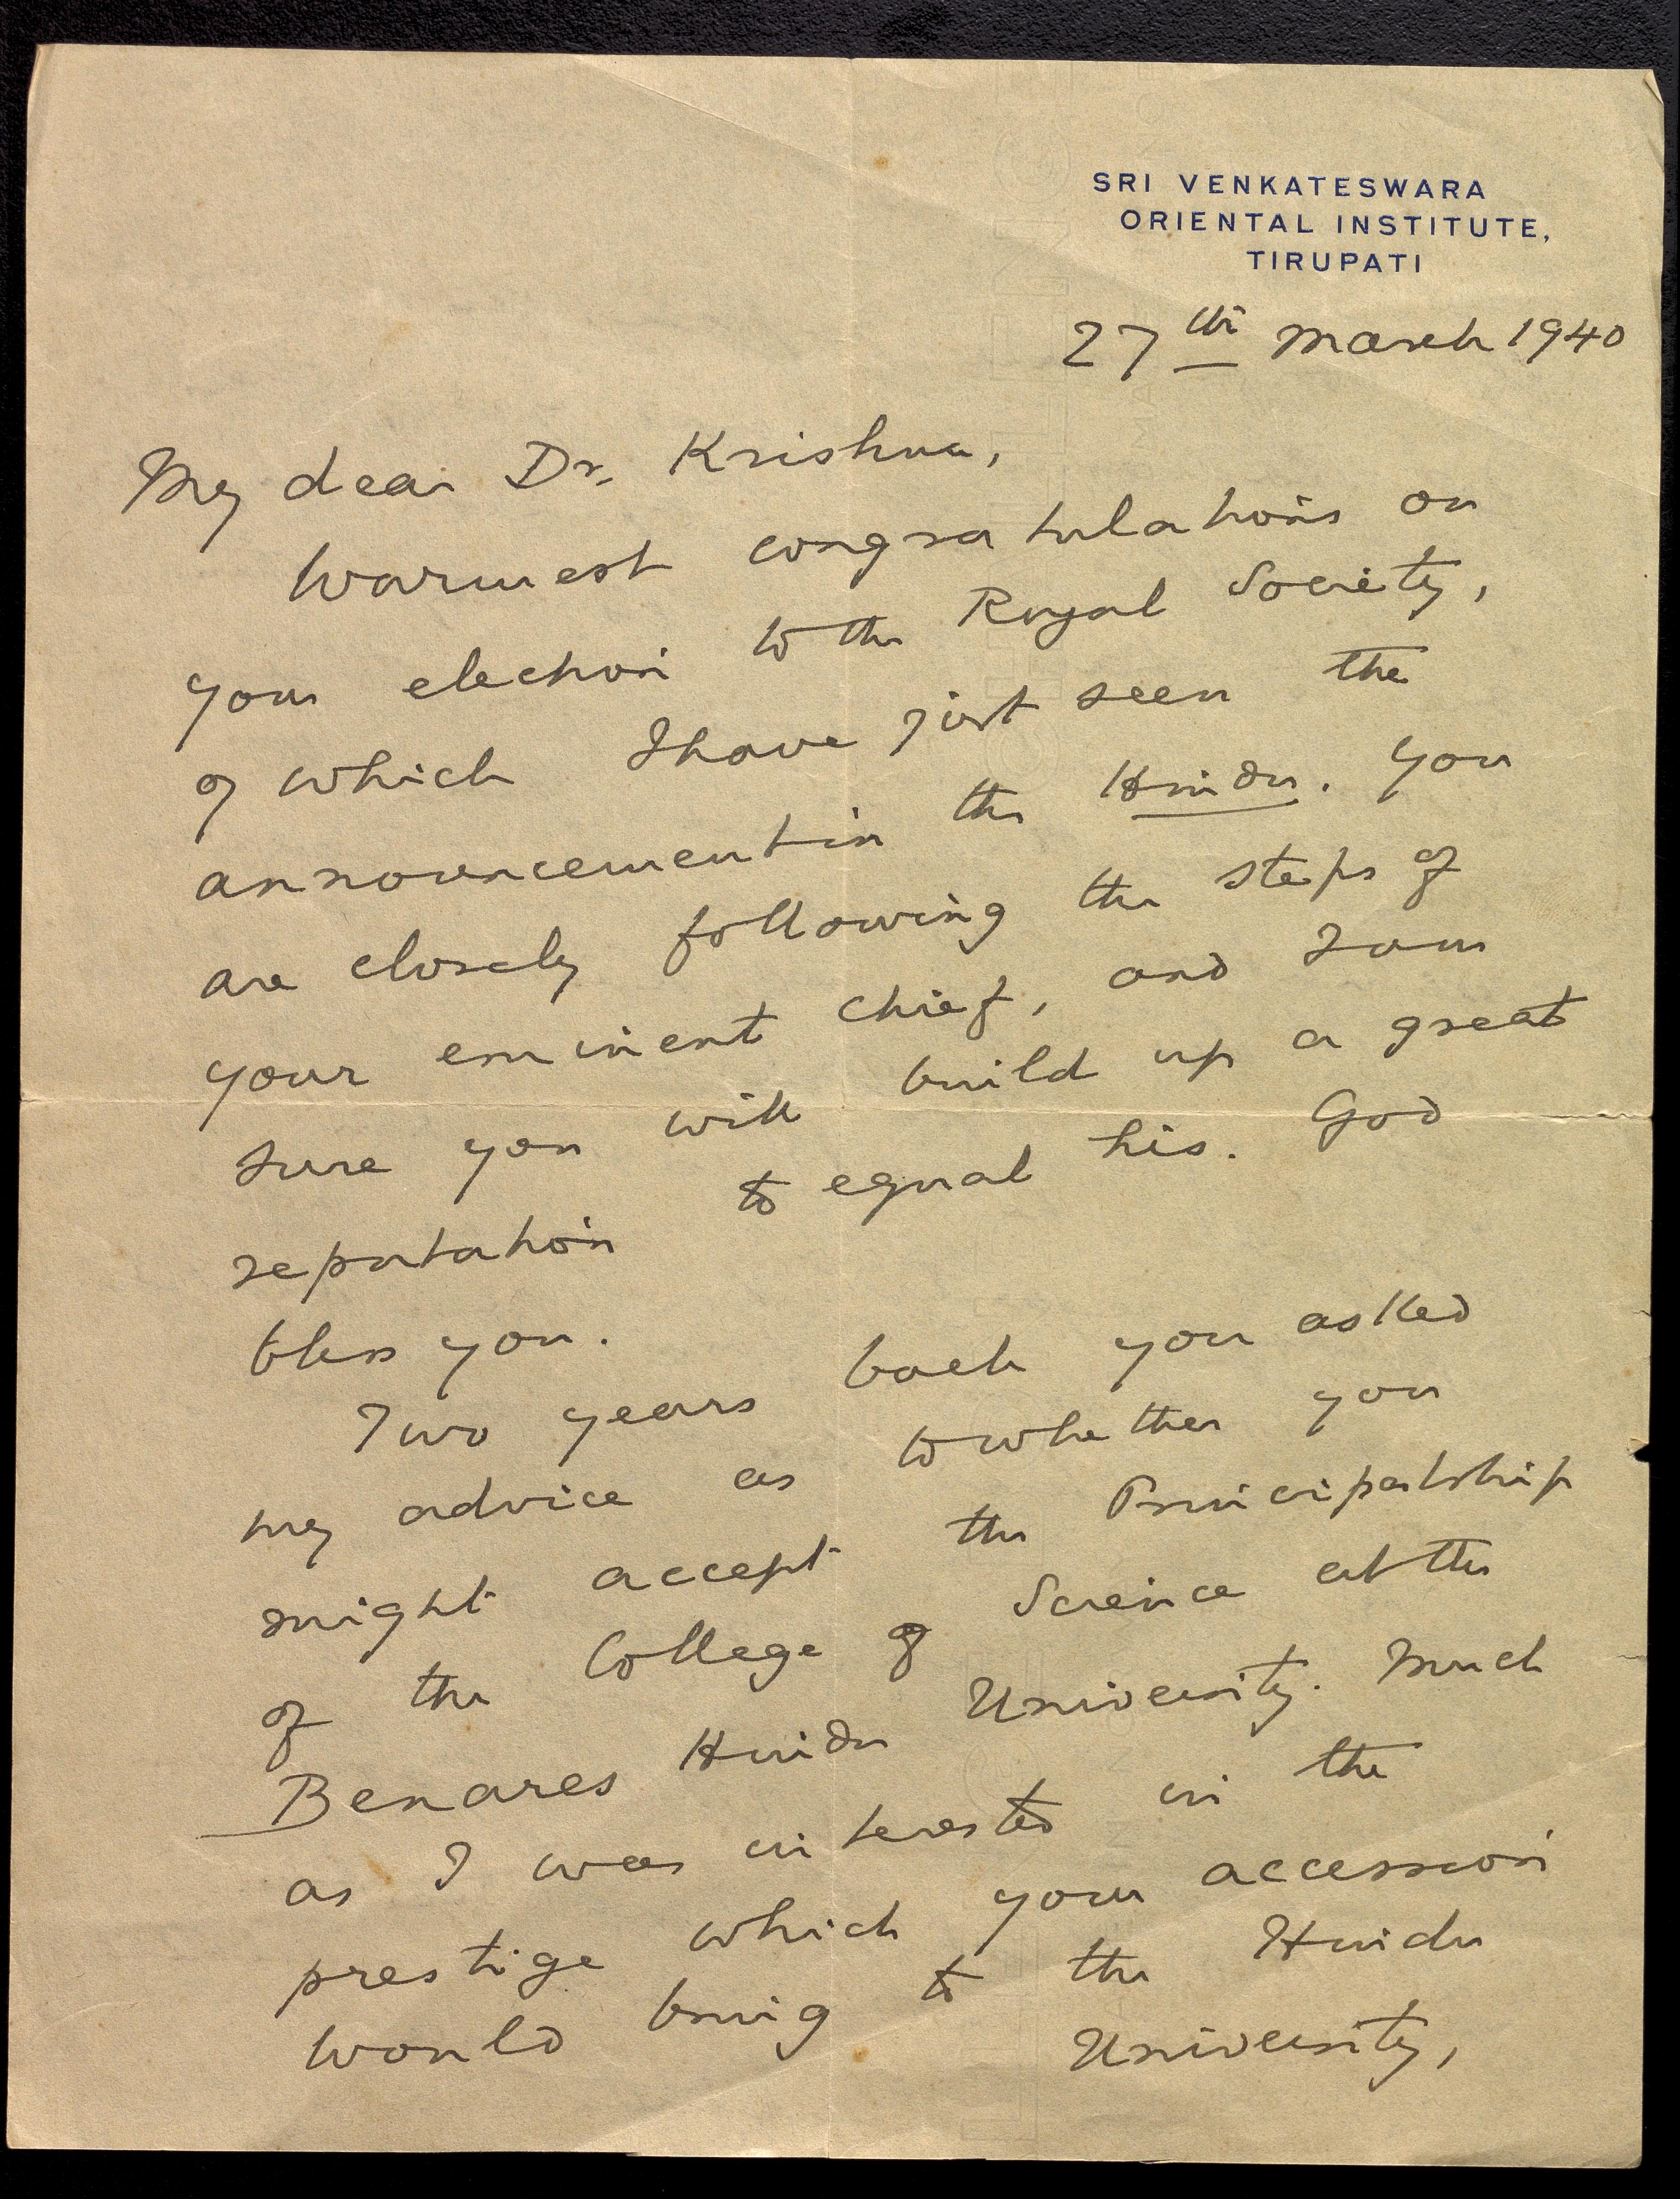 SRI VENKATESWARA
ORIENTAL INSTITUTE,
TIRUPATI
27th March 1940
My dear Dr. Krishna,
Warmest congratulations on
your election to the Royal Society,
of which I have just seen the
announcement in the Hindu. You
are closely following the steps of
your eminent chief, and I am
sure you will build up a great
reputation to equal his. God
bless you.
Two years back you asked
my advice as to whether you
might accept the Principalship
of the College of Science at the
Benares Hindu University. Much
as I was interested in the
prestige which your accession
would bring to the Hindu
University,